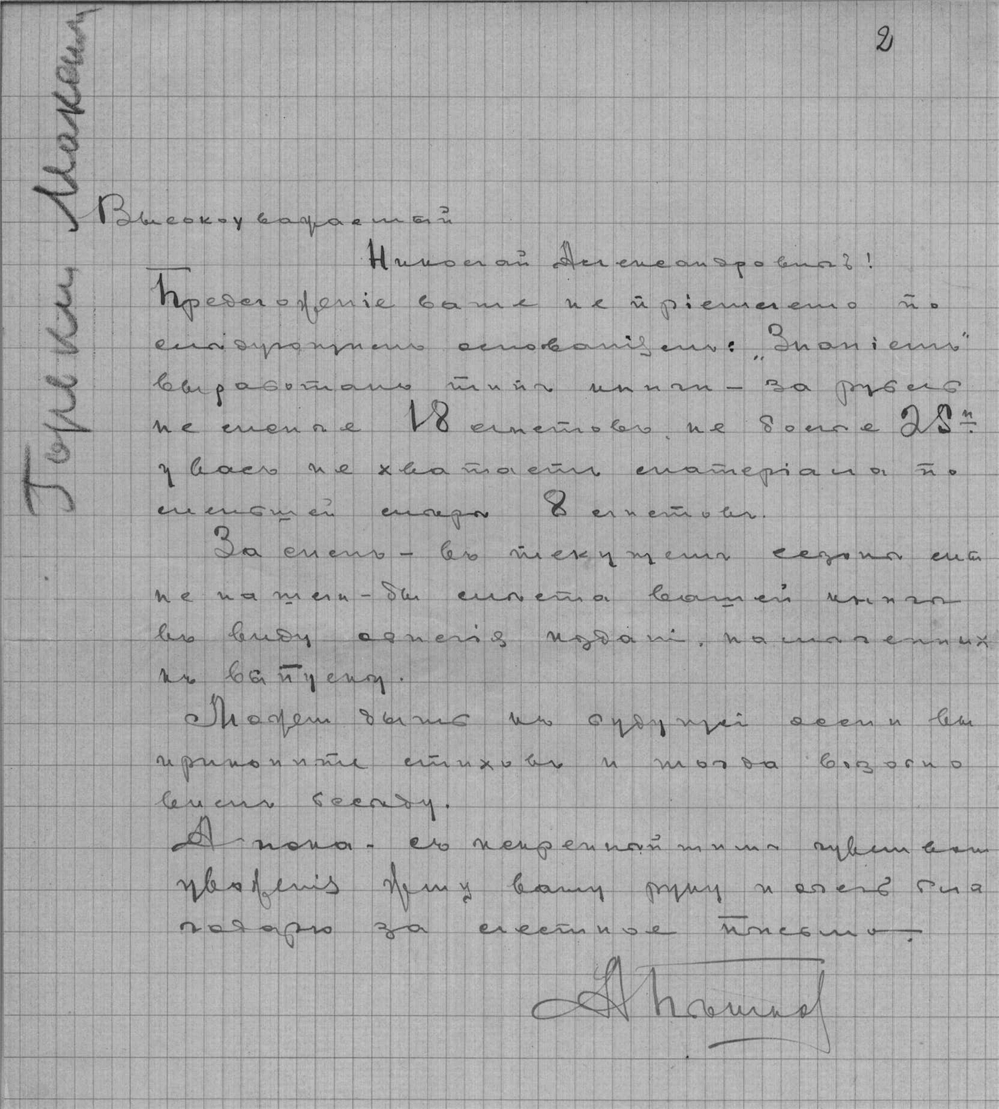 2
Горький Максим
Высокоуважаемый
Николай Александровичъ!
Предложеніе ваше не пріемлемо по
слѣдующимъ основаніямъ: „Знаніемъ"
выработанъ типъ книги – за рубль
не менѣе 18 листовъ, не более 25-и
у васъ не хватаетъ матеріала по
меньшей мѣрѣ 8 листовъ.
За симъ – въ текущемъ сезонѣ мы
не нашли-бы мѣста вашей книгѣ
въ виду обилія изданій, намѣченных
къ выпуску.
Может быть къ будущей осени вы
прикопите стиховъ и тогда возобно
вимъ беседу.
А пока – съ искреннѣйшимъ чувством
уваженія жму вашу руку и очень бла
годарю за лестное письмо.
А Пѣшков